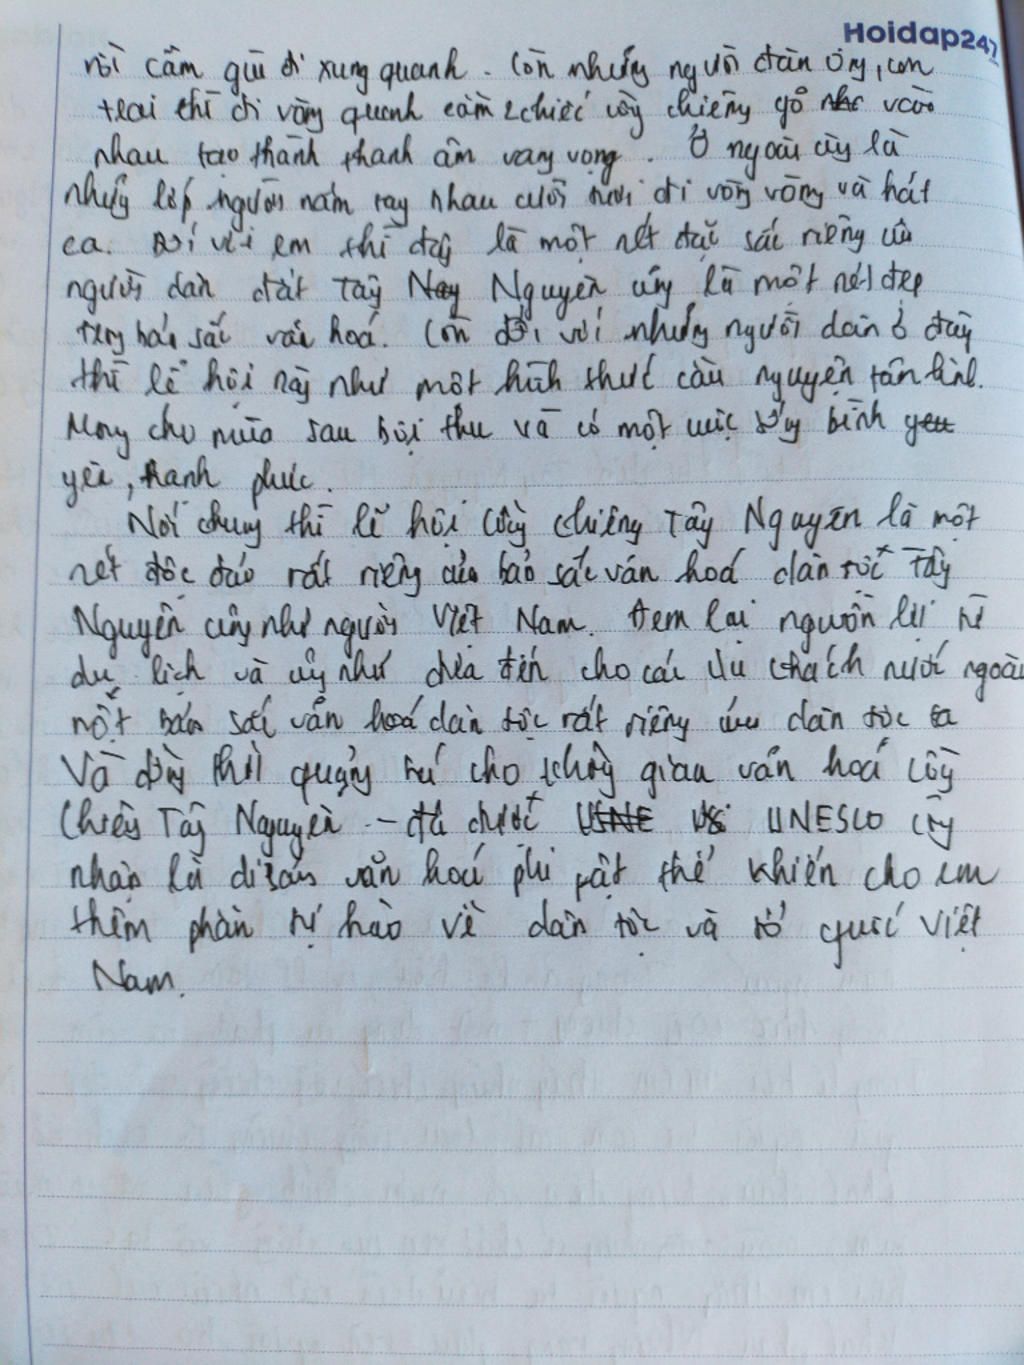 Hoidap247
rồi cầm gùi đi xung quanh. Còn những người đàn ông, con
trai thì đi vòng quanh cầm chiếc cồng chiêng gõ vào
nhau tạo thành thanh âm vang vọng. Ở ngoài cùng là
những lớp người nắm tay nhau cười tươi đi vòng vòng và hát
ca. Đối với em thì đây là một nét đặc sắc riêng của
người dân đất Tây Nguyên cũng là một nét đẹp
trong bản sắc văn hoá. Còn đối với những người dân ở đây
thì lễ hội này như một hình thức cầu nguyện tâm linh.
Mong cho mùa sau bội thu và có một cuộc sống bình
yên, hạnh phúc.
Nói chung thì lễ hội Cồng chiêng Tây Nguyên là một
nét độc đáo rất riêng của bản sắc văn hoá dân tộc Tây
Nguyên cũng như người Việt Nam. Đem lại nguồn lợi về
du lịch và cũng như đưa đến cho các du khách nước ngoài
một bản sắc văn hoá dân tộc rất riêng của dân tộc ta
Và đồng thời quảng bá cho không gian văn hoá cồng
Chiêng Tây Nguyên - đã được UNESCO công
nhận là di sản văn hoá phi vật thể khiến cho em
thêm phần tự hào về dân tộc và tổ quốc Việt
Nam.